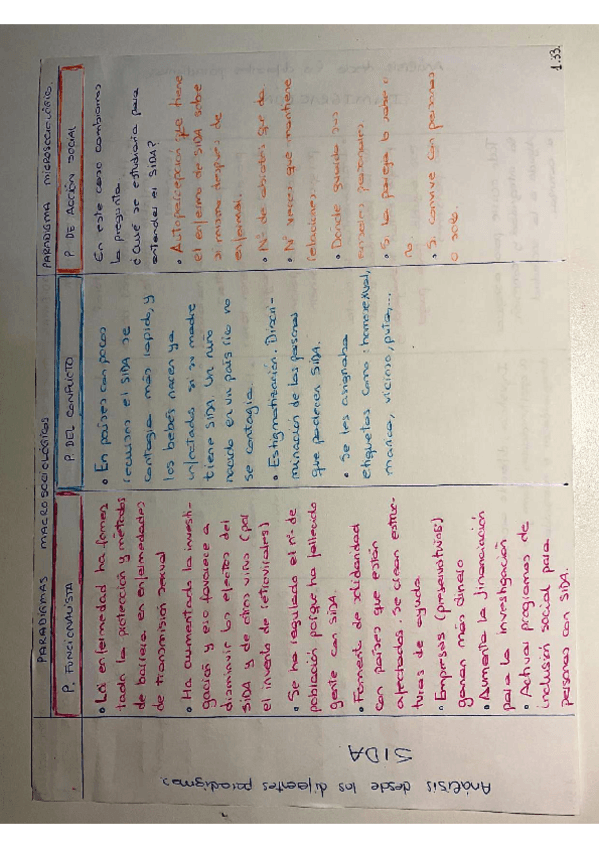 Análisis desde los diferentes paradigmas.
SIDA
PARADIGMAS MACROSOCIOLÓGICOS
P. FUNCIONALISTA
• La enfermedad ha fomen-
tado la protección y métodos
de barrera en enfermedades
de transmisión sexual
• Ha aumentado la investi-
gación y eso favorece a
disminuir los efectos del
SIDA y de otros virus (por
el invento de retrovirales)
• Se ha regulado el nº de
población porque ha fallecido
gente con SIDA.
• Fomento de solidaridad
con países que están
afectados. Se crean estruc-
turas de ayuda
• Empresas (preservativos)
ganan más dinero
• Aumenta la financiación
para la investigación
• Actual programas de
inclusión social para
personas con SIDA.
P. DEL CONFLICTO
• En países con pocos
recursos el SIDA se
contagia más rápido, y
los bebés nacen ya
infectados si su madre
tiene SIDA. Un niño
nacido en un país rico no
se contagia.
• Estigmatización. Discri-
minación de las personas
que padecen SIDA.
• Se les asignaba
etiquetas como: homosexual,
marica, vicioso, puta,...
PARADIGMA MICROSOCIOLÓGICO.
P. DE ACCIÓN SOCIAL
En este caso cambiamos
la pregunta.
¿Qué se estudiaría para
entender el SIDA?
• Autopercepción que tiene
el enfermo de SIDA sobre
si mismo después de
enfermar.
• Nº de abrazos que da
• Nº veces que mantiene
relaciones.
• Dónde guarda sus
enseres personales.
• Si la pareja lo sabe o
no.
• Si convive con personas
o solo.
1.33.